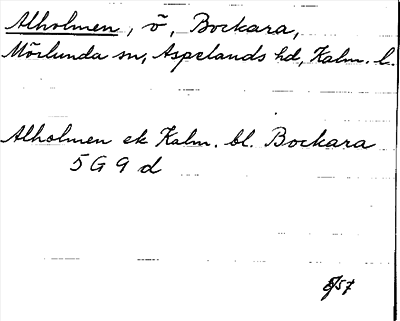 Alholmen, ö, Bockara,
Mörlunda sn, Aspelands hd, Kalm. l.
Alholmen ek Kalm. bl. Bockara
5 G 9 d